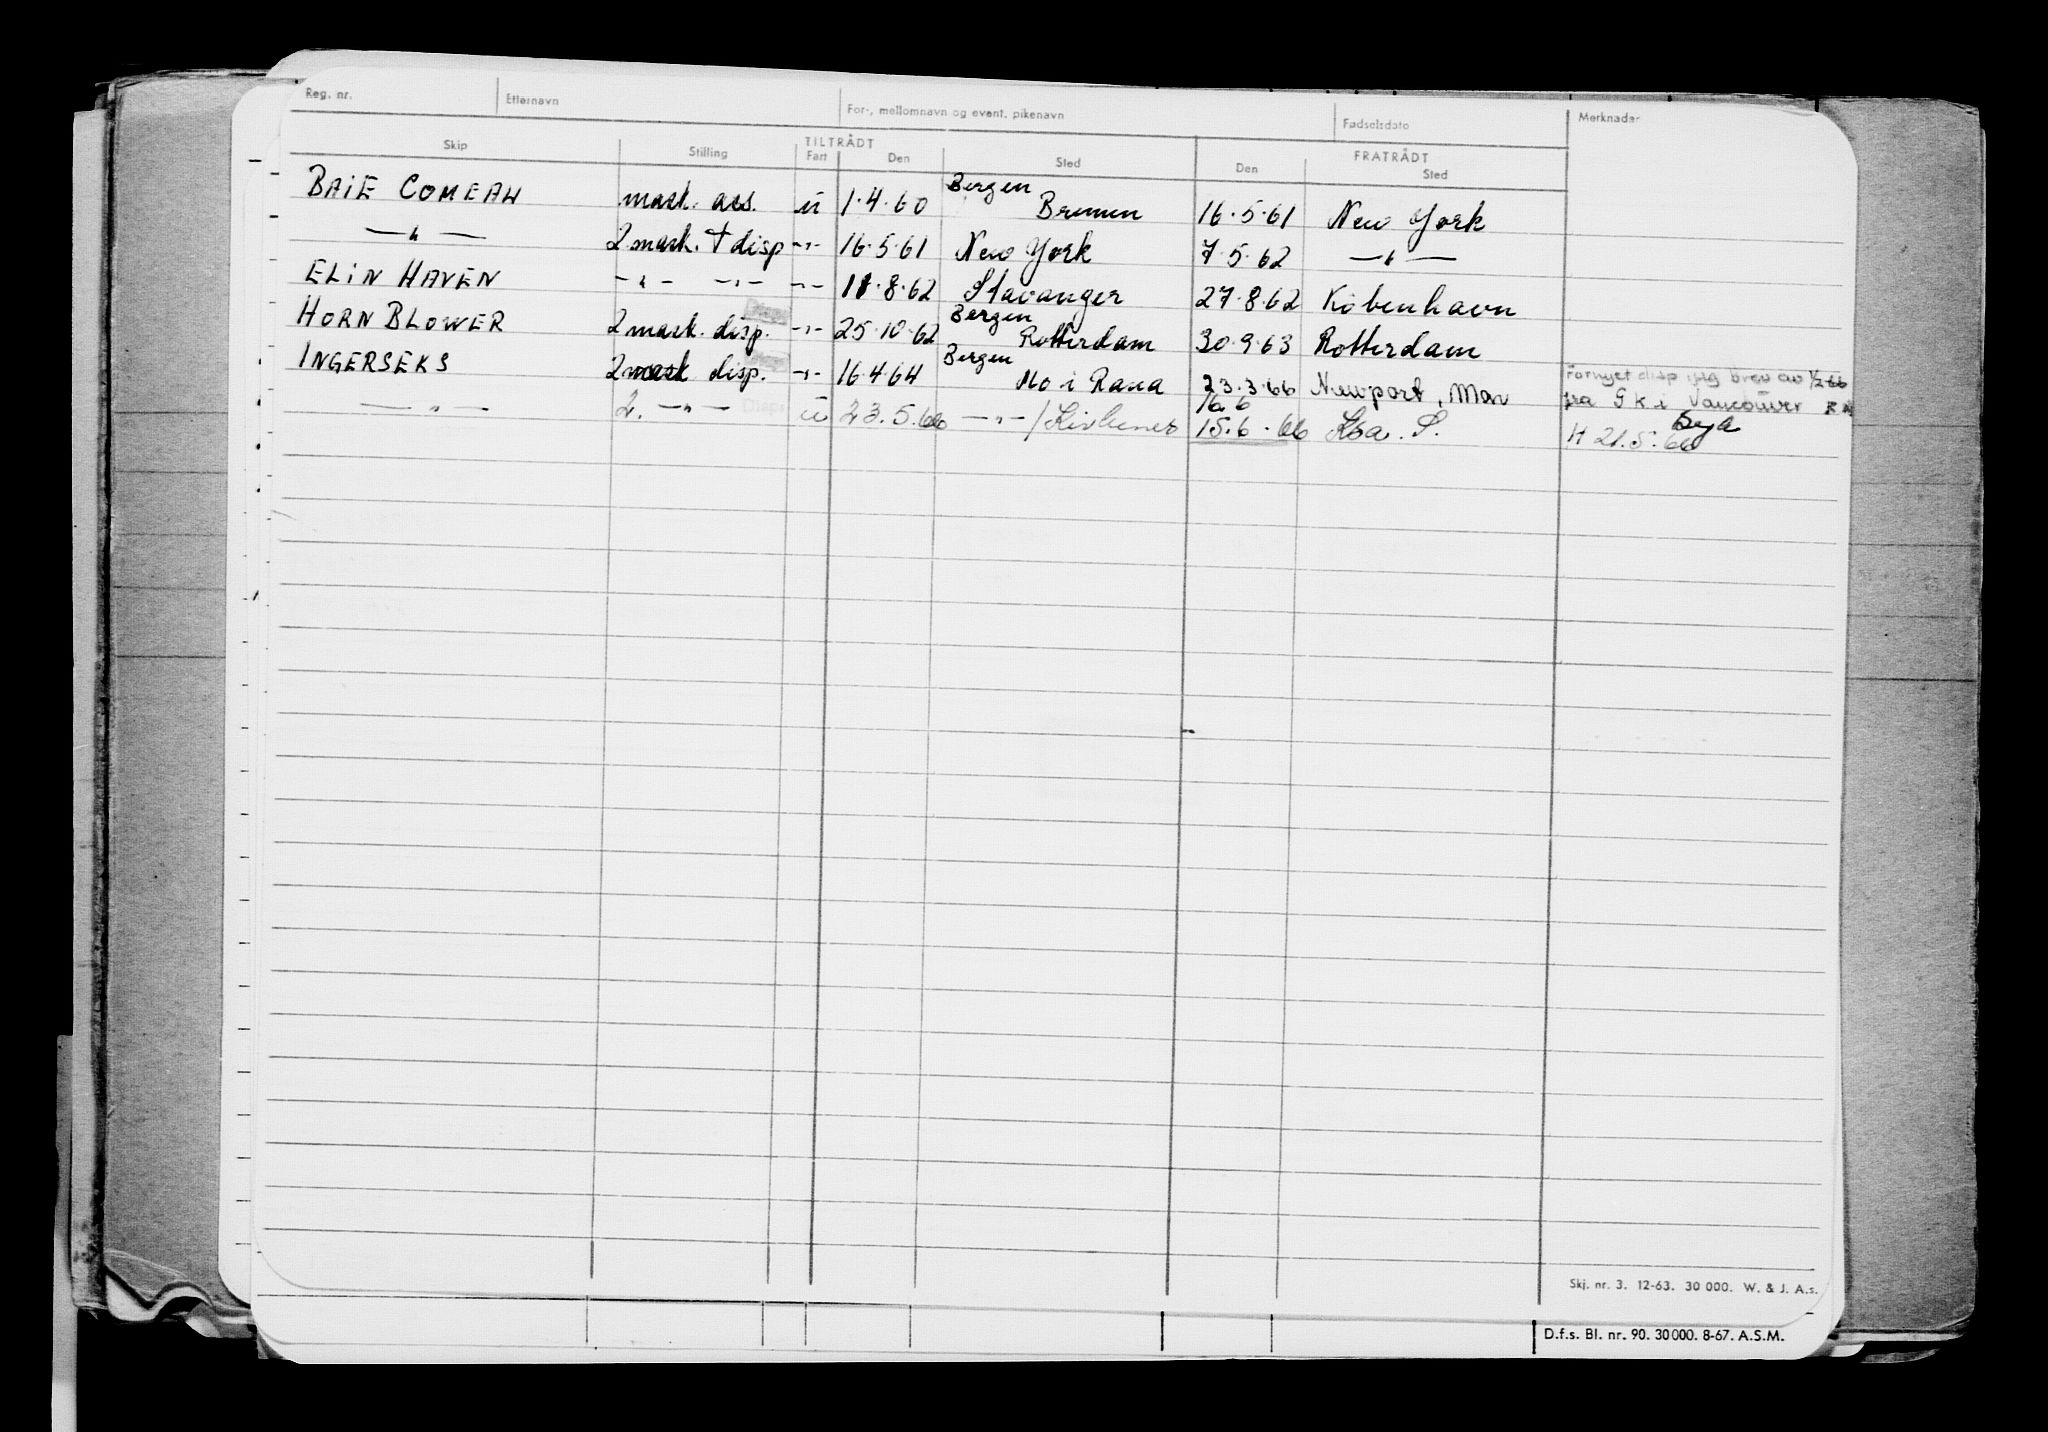 Reg. nr. Etternavn For-, mellomnavn og event. pikenavn Fødselsdato Merknader
TILTRÅDT FRATRÅDT
Skip Stilling Fart Den Sted Den Sted
BAIE COMEAU mask. ass. u 1.4.60 Bergen Bremen 16.5.61 New York
—"— 2 mask. † disp -"- 16.5.61 New York 7.5.62 —"—
ELIN HAVEN -"- -"- -"- 11.8.62 Stavanger 27.8.62 København
HORN BLOWER 2 mask. disp. -"- 25.10.62 Bergen Rotterdam 30.9.63 Rotterdam
INGERSEKS 2 mask disp. -"- 16.4.64 Bergen Mo i Rana 23.3.66 Newport, Mon Fornyet disp brev av 1/2 66
—"— 2. —"— Disp. u 23.5.66 —"—/Kirkenes 16.6 15.6.66 fra GK i Vancouver
Syk
H 21.5.66
Skj. nr. 3. 12-63. 30 000. W. & J. A.s.
D.f.s. Bl. nr. 90. 30000. 8-67. A.S.M.